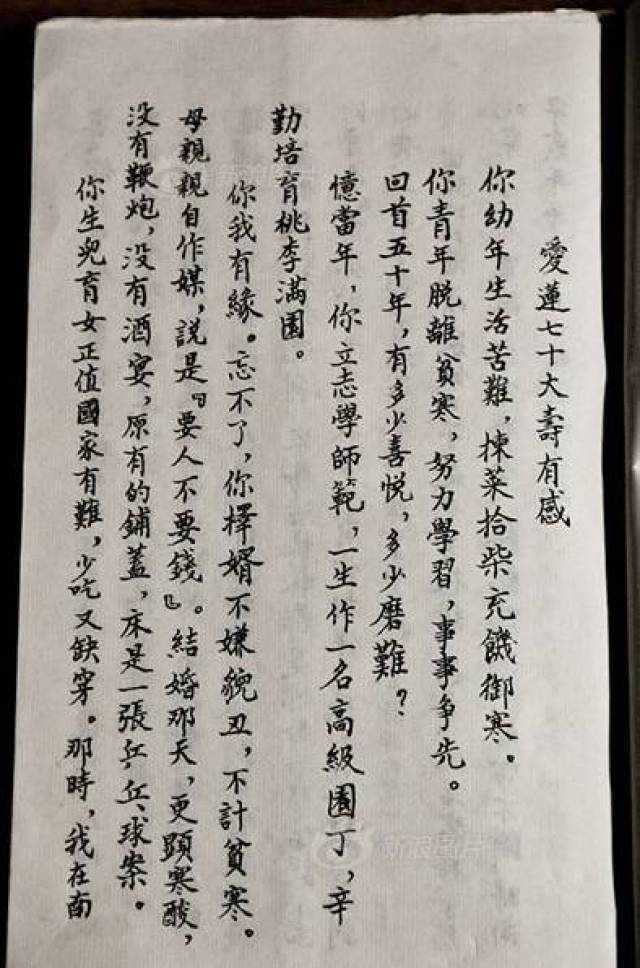 愛蓮七十大壽有感
你幼年生活苦難，揀菜拾柴充饑御寒。
你青年脫離貧寒，努力學習，事事争先。
回首五十年，有多少喜悦，多少磨難？
憶當年，你立志學師範，一生作一名高級園丁，辛
勤培育桃李满園。
你我有緣。忘不了，你擇婿不嫌貌丑，不計貧寒。
母親親自作媒，説是『要人不要錢』。結婚那天，更顕寒酸，
没有鞭炮，没有酒宴，原有的鋪蓋，床是一張乒乓球案。
你生兒育女正值國家有難，少吃又缺穿。那時，我在南
新浪图片